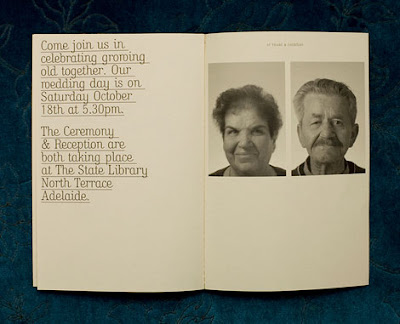 Come join us in
celebrating growing
old together. Our
wedding day is on
Saturday October
18th at 5.30pm.
The Ceremony
& Reception are
both taking place
at The State Library
North Terrace
Adelaide.